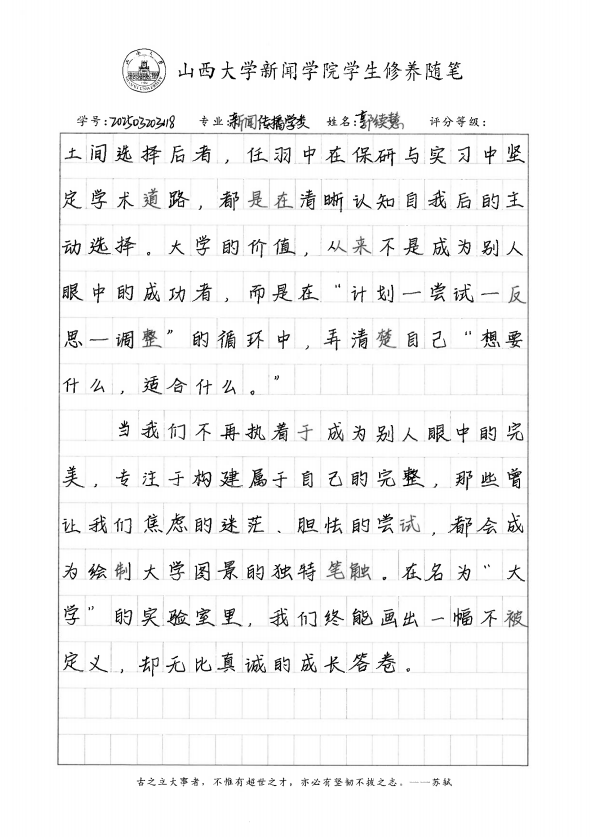 山西大学新闻学院学生修养随笔
学号:202503203418 专业:新闻传播学类 姓名:郭续慧 评分等级:
土间选择后者，任羽中在保研与实习中坚
定学术道路，都是在清晰认知自我后的主
动选择。大学的价值，从来不是成为别人
眼中的成功者，而是在“计划—尝试—反
思—调整”的循环中，弄清楚自己“想要
什么，适合什么。”
当我们不再执着于成为别人眼中的完
美，专注于构建属于自己的完整，那些曾
让我们焦虑的迷茫、胆怯的尝试，都会成
为绘制大学图景的独特笔触。在名为“大
学”的实验室里，我们终能画出一幅不被
定义，却无比真诚的成长答卷。
古之立大事者，不惟有超世之才，亦必有坚韧不拔之志。——苏轼